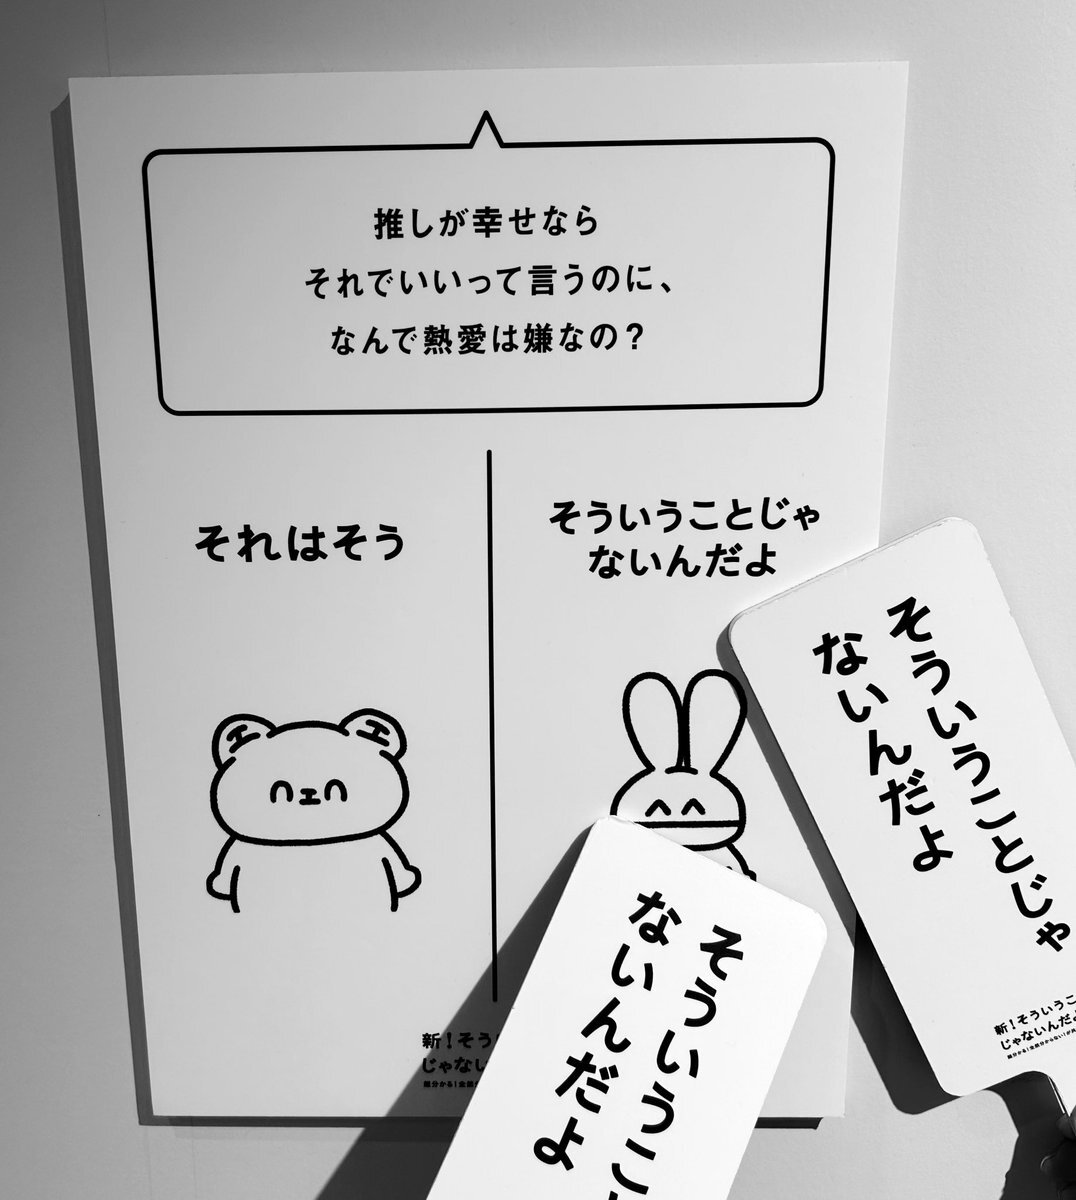 推しが幸せなら
それでいいって言うのに、
なんで熱愛は嫌なの？
それはそう
そういうことじゃ
ないんだよ
エ エ
そういうことじゃ
ないんだよ
新！そういうこ
じゃないんだよ
そういうこ
ないんだよ
新！そう
じゃない